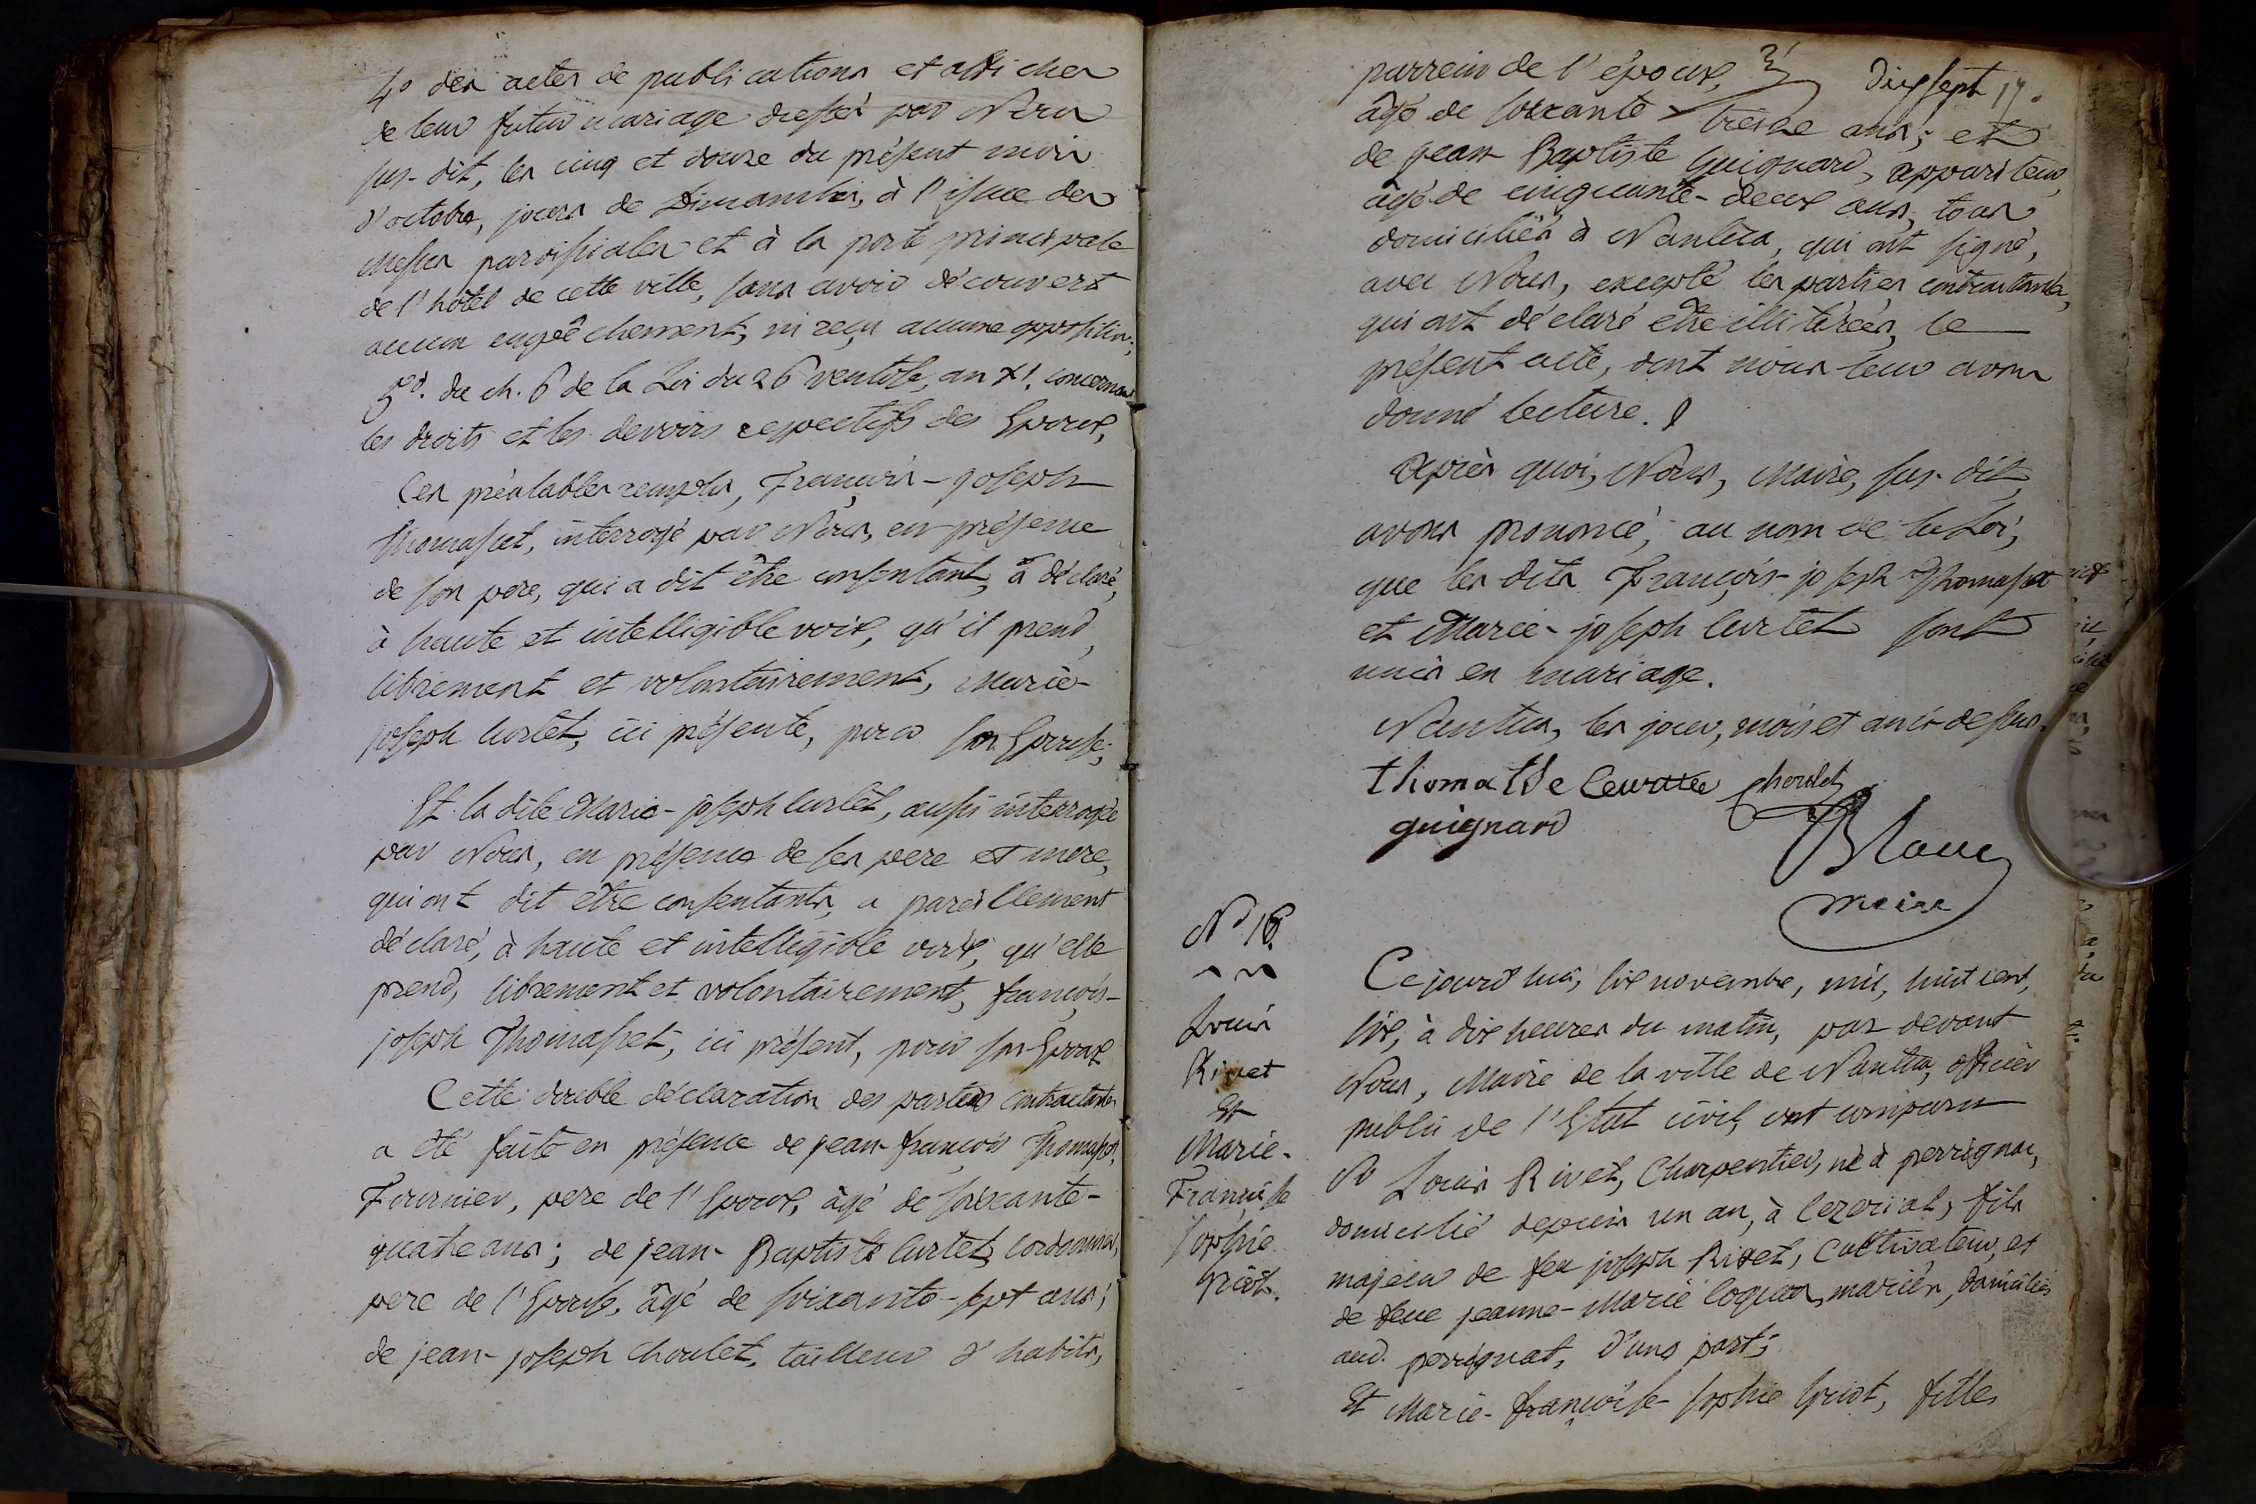 4º des actes de publications et affiches
de leur futur mariage dressés par Nous
sus-dit, les cinq et douze du présent mois
d'octobre, jours de Dimanches, à l'issue des
messes paroissiales et à la porte principale
de l'hôtel de cette ville, sans avoir découvert
aucun empêchement, ni reçu aucune opposition;
5º. du ch. 6 de la Loi du 26 ventôse, an XI. concernant
les droits et les devoirs respectifs des Epoux,
Ces préalables remplis, François-joseph
Thomasset, interrogé par Nous, en présence
de son pere, qui a dit être consentant, a déclaré,
à haute et intelligible voix, qu'il prend,
librement et volontairement, Marie-
joseph Curtet, ici présente, pour son Epouse;
Et la dite Marie-joseph Curtet, aussi interrogée
par Nous, en présence de ses pere et mere,
qui ont dit être consentants, a pareillement
déclaré, à haute et intelligible voix, qu'elle
prend, librement et volontairement, françois-
joseph Thomasset, ici présent, pour son Epoux
Cette double déclaration des parties contractantes
a été faite en présence de jean-françois Thomasset,
Fournier, pere de l'Epoux, âgé de soixante-
quatre ans; de jean-Baptiste Curtet, Cordonnier,
pere de l'Epouse, âgé de soixante-sept ans;
de jean-joseph Choulet, tailleur d'habits,
Dix sept 17.
parrein de l'époux,
âgé de soixante-treize ans; et
de jean Baptiste Guignard, appariteur,
âgé de cinquante-deux ans, tous
domiciliés à Nantua, qui ont signé,
avec Nous, excepté les parties contractantes,
qui ont déclaré être illitérées, le
présent acte, dont nous leur avons
donné lecture.
Après quoi, Nous, Maire, sus-dit,
avons prononcé, au nom de la Loi,
que les dits François-joseph Thomasset
et Marie-joseph Curtet sont
unis en mariage.
Nantua, les jour, mois et an ci-dessus.
Choulet
guignard
Blanc
maire
Nº 16.
Louis
Rivet
Et
Marie-
Françoise
Sophie
Griot.
Cejourd'hui, six novembre, mil, huit cent,
six, à dix heures du matin, par devant
Nous, Maire de la ville de Nantua, officier
public de l'Etat civil, ont comparu
Louis Rivet, Charpentier, né à perrignat,
domicilié depuis un an, à Ceyzeriat, fils
majeur de feu joseph Rivet, Cultivateur, et
de feue jeanne-Marie, mariés, domiciliés
aud. perrignat, d'une part;
Et Marie-françoise-Sophie Griot, fille